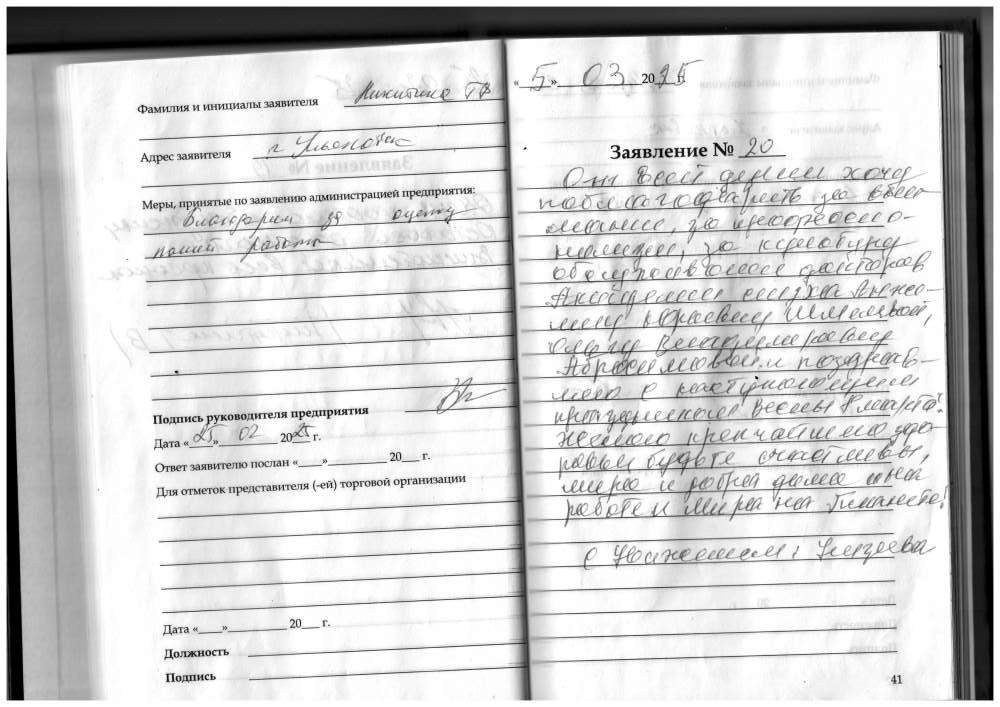 Фамилия и инициалы заявителя Никитина Т.В.
Адрес заявителя г. Ульяновск
Меры, принятые по заявлению администрацией предприятия:
Благодарим за оценку
нашей работы
Подпись руководителя предприятия
Дата «25» 02 2025 г.
Ответ заявителю послан «___»__________ 20___ г.
Для отметок представителя (-ей) торговой организации
Дата «____»__________ 20___ г.
Должность
Подпись
«5» 03 2025
Заявление № 20
От всей души хочу
поблагодарить за вни
мание, за професио-
нализм, за
докторов
Академии слуха Анже-
лику Юрьевну
Владимировну
Абросимову и поздрав-
ляю с наступающим
праздником Весны 8 марта!
Желаю крепчайшего здо-
ровья будьте счастливы,
мира и добра дома и на
работе и мира на Планете!
С Уважением:
41